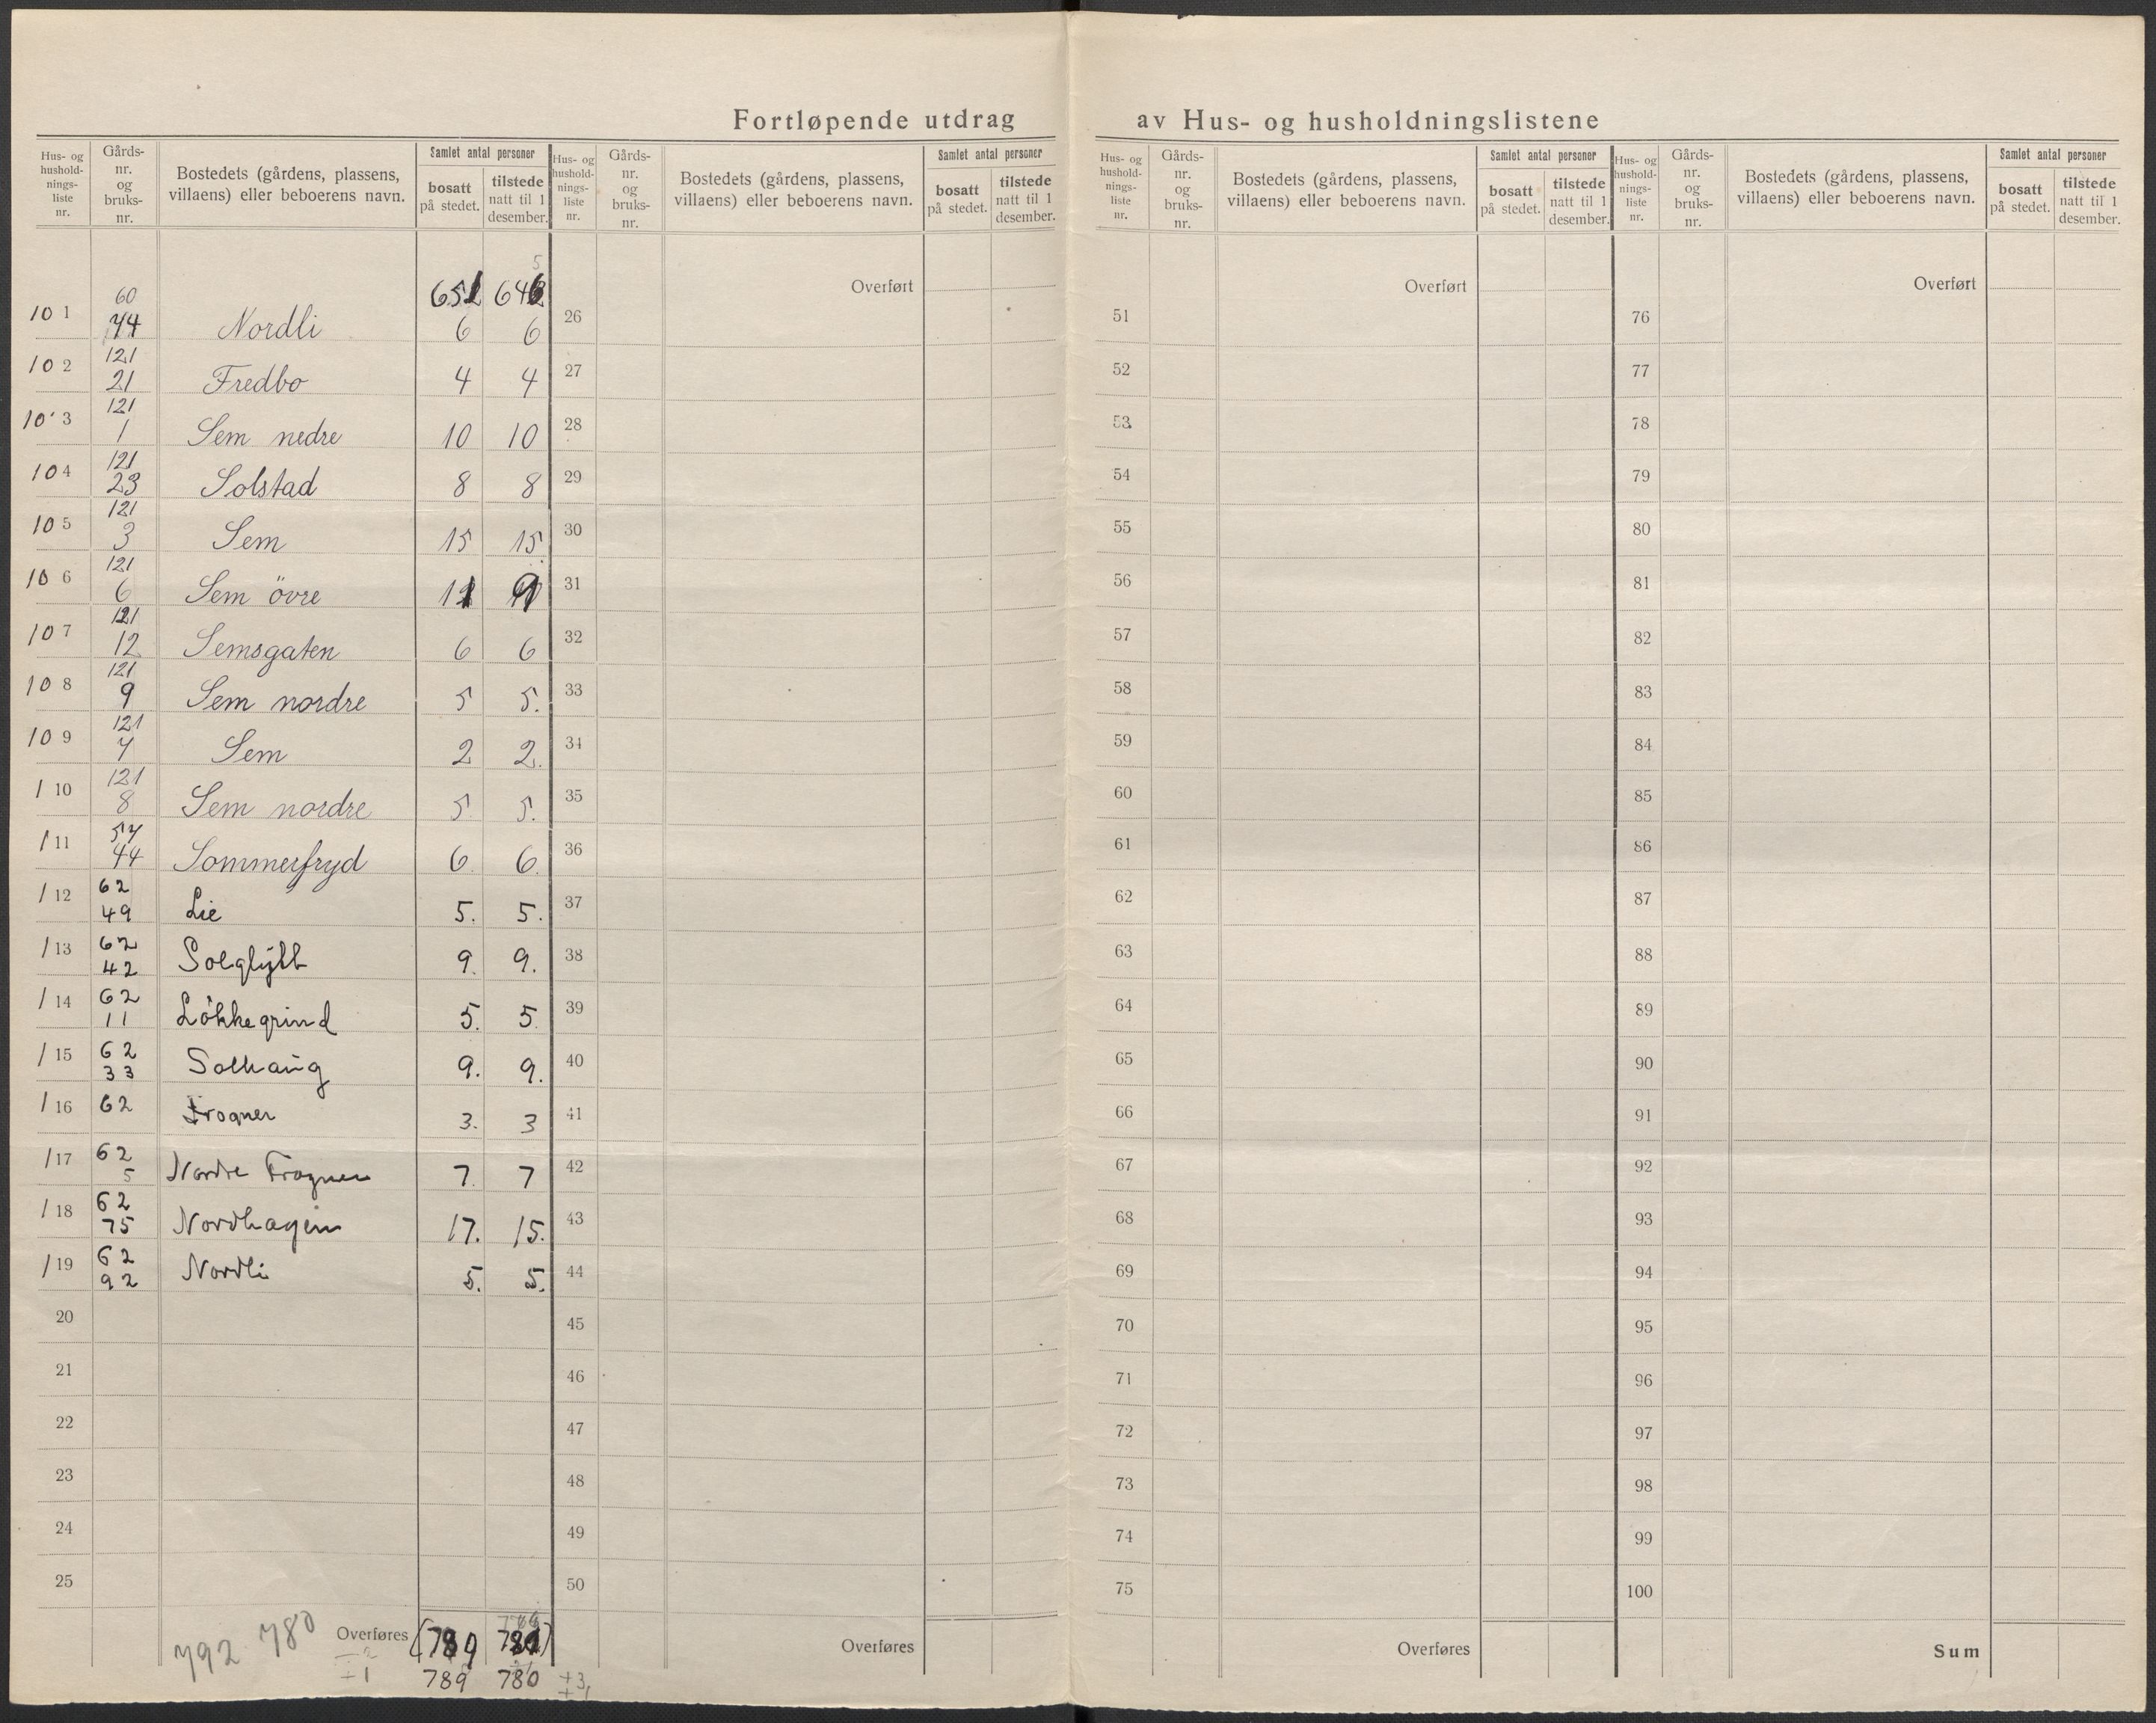 Fortløpende utdrag av Hus- og husholdningslistene
Hus- og hushold-nings-liste nr. Gårds-nr. og bruks-nr. Bostedets (gårdens, plassens, villaens) eller beboerens navn. Samlet antal personer bosatt på stedet. tilstede natt til 1 desember.
Hus- og hushold-nings-liste nr. Gårds-nr. og bruks-nr. Bostedets (gårdens, plassens, villaens) eller beboerens navn. Samlet antal personer bosatt på stedet. tilstede natt til 1 desember.
Hus- og hushold-nings-liste nr. Gårds-nr. og bruks-nr. Bostedets (gårdens, plassens, villaens) eller beboerens navn. Samlet antal personer bosatt på stedet. tilstede natt til 1 desember.
Hus- og hushold-nings-liste nr. Gårds-nr. og bruks-nr. Bostedets (gårdens, plassens, villaens) eller beboerens navn. Samlet antal personer bosatt på stedet. tilstede natt til 1 desember.
5
651 646
101 60 44 Nordli 6 6
102 121 21 Fredbo 4 4
103 121 1 Sem nedre 10 10
104 121 23 Solstad 8 8
105 121 3 Sem 15 15
106 121 6 Sem övre 11 9
107 121 12 Semsgaten 6 6
108 121 9 Sem nordre 5 5.
109 121 7 Sem 2 2.
110 121 8 Sem nordre 5 5.
111 57 44 Sommerfryd 6 6
112 62 49 Lie 5. 5.
113 62 42 Solglytt 9. 9.
114 62 11 Lökkegrind 5. 5.
115 62 33 Solhaug 9. 9.
116 62 Frogner 3. 3
117 62 5 Nordre Frogner 7. 7
118 62 75 Nordhagen 17. 15.
119 62 92 Nordli 5. 5.
20
21
22
23
24
25
792 780 Overføres (789
÷1 789 780 ÷3
Overført
26
27
28
29
30
31
32
33
34
35
36
37
38
39
40
41
42
43
44
45
46
47
48
49
50
Overføres
Overført
51
52
53
54
55
56
57
58
59
60
61
62
63
64
65
66
67
68
69
70
71
72
73
74
75
Overføres
Overført
76
77
78
79
80
81
82
83
84
85
86
87
88
89
90
91
92
93
94
95
96
97
98
99
100
Sum